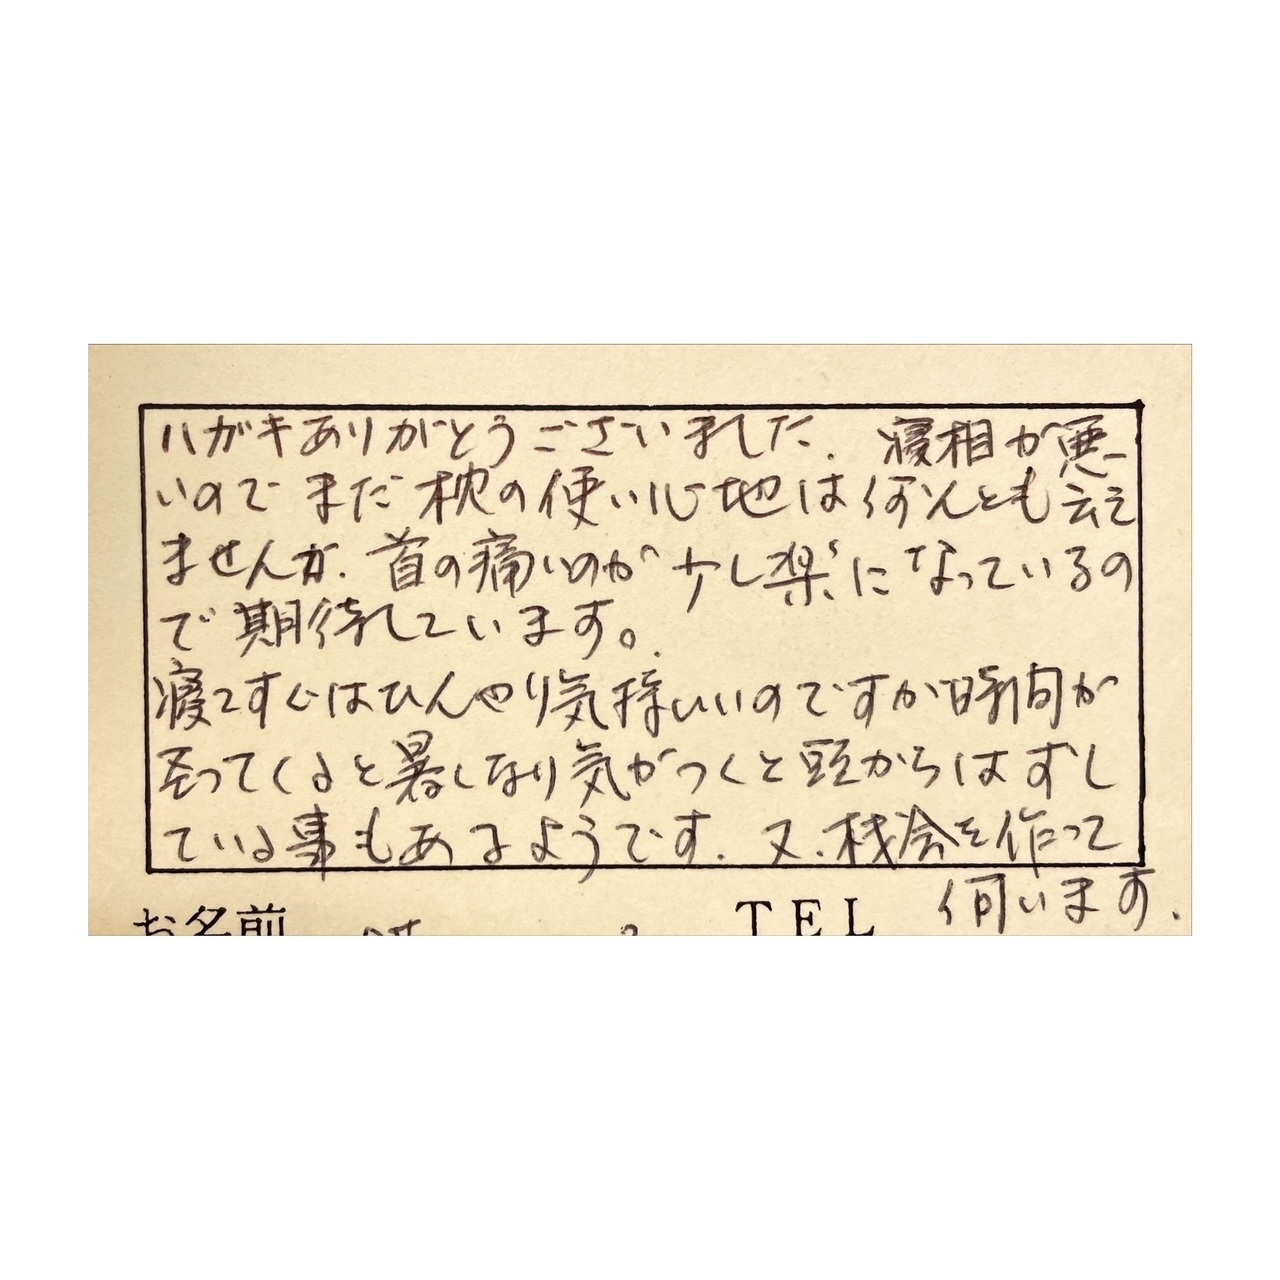 ハガキありがとうございました. 寝相が悪
いのでまだ枕の使い心地は何んとも云え
ませんが. 首の痛いのが少し楽になっているの
で期待しています。
寝てすぐはひんやり気持いいのですが時間が
至ってくると暑くなり気がつくと頭からはずし
ている事もあるようです. 又、機会を作って
伺います.
お名前 TEL